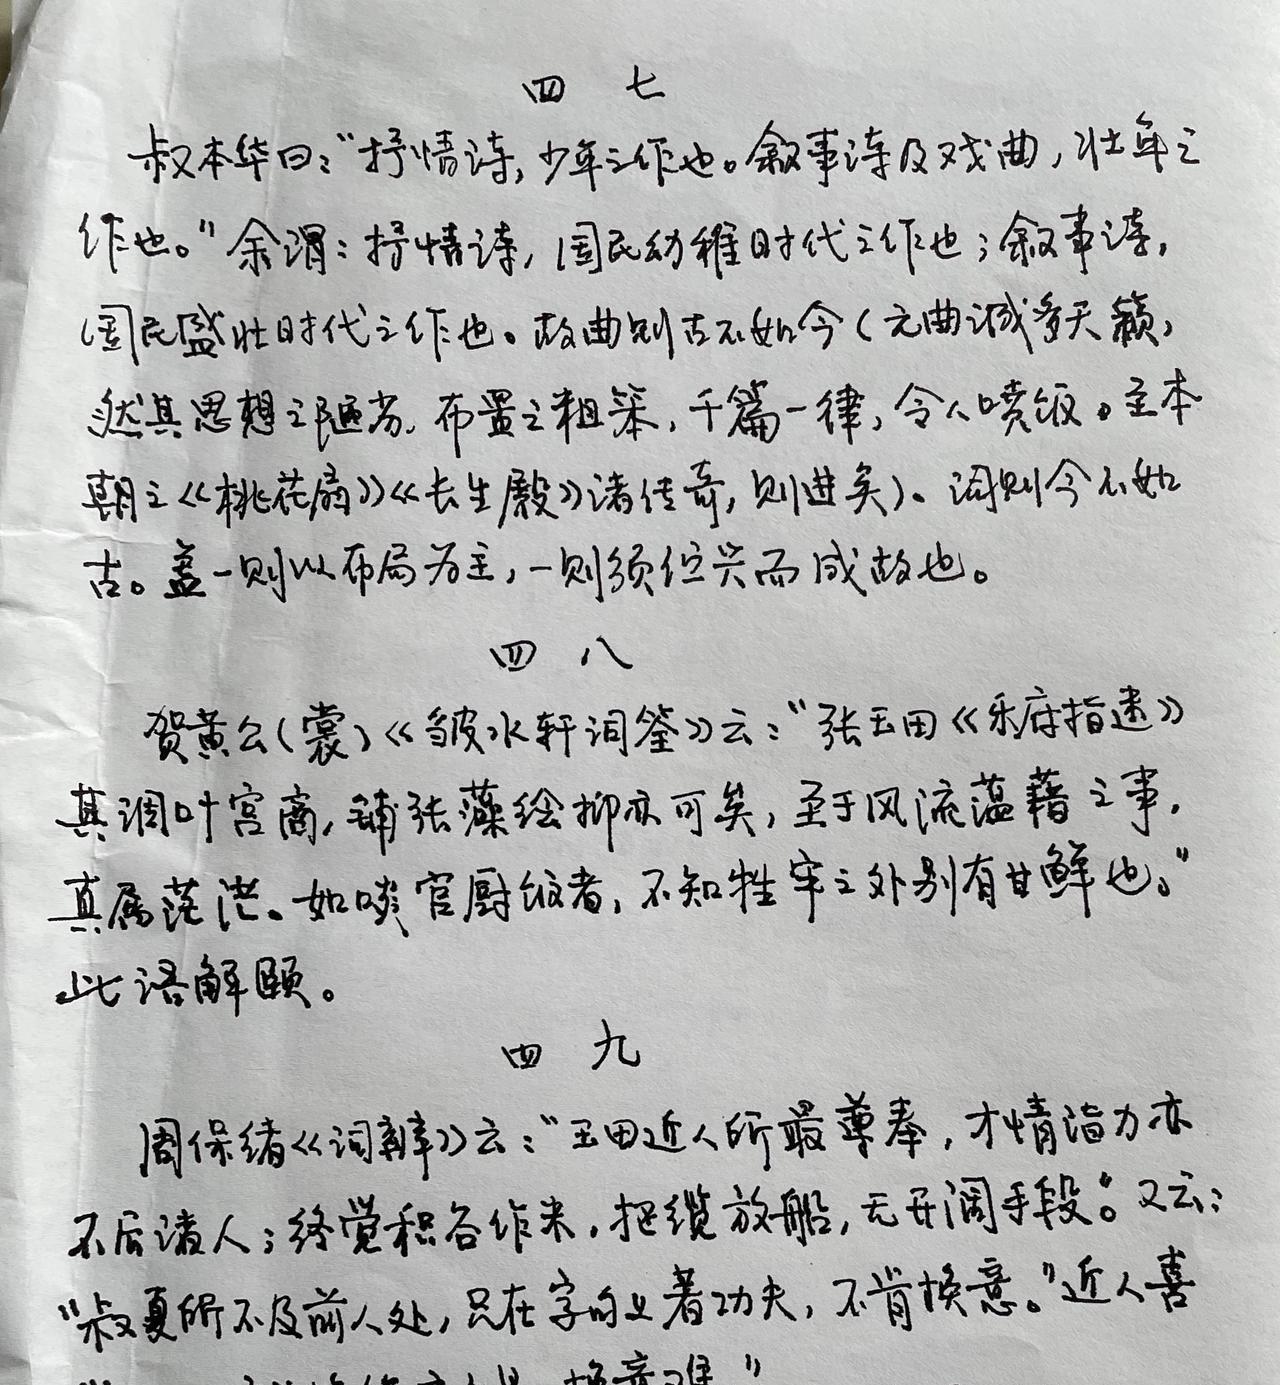 四 七
叔本华曰："抒情诗，少年之作也。叙事诗及戏曲，壮年之
作也。"余谓：抒情诗，国民幼稚时代之作也；叙事诗，
国民盛壮时代之作也。故曲则古不如今（元曲诚多天籁，
然其思想之陋劣，布置之粗笨，千篇一律，令人喷饭。至本
朝之《桃花扇》《长生殿》诸传奇，则进矣）。词则今不如
古。盖一则以布局为主，一则须伫兴而成故也。
四 八
贺黄公（裳）《皱水轩词筌》云："张玉田《乐府指迷》
其调叶宫商，铺张藻绘抑亦可矣，至于风流蕴藉之事，
真属茫茫。如啖官厨饭者，不知牲牢之外别有甘鲜也。"
此语解颐。
四 九
周保绪《词辨》云："玉田近人所最尊奉，才情诣力亦
不后诸人；终觉积谷作米，把缆放船，无开阔手段。"又云：
"叔夏所不及前人处，只在字句上著功夫，不肯换意。"近人喜
换意难"